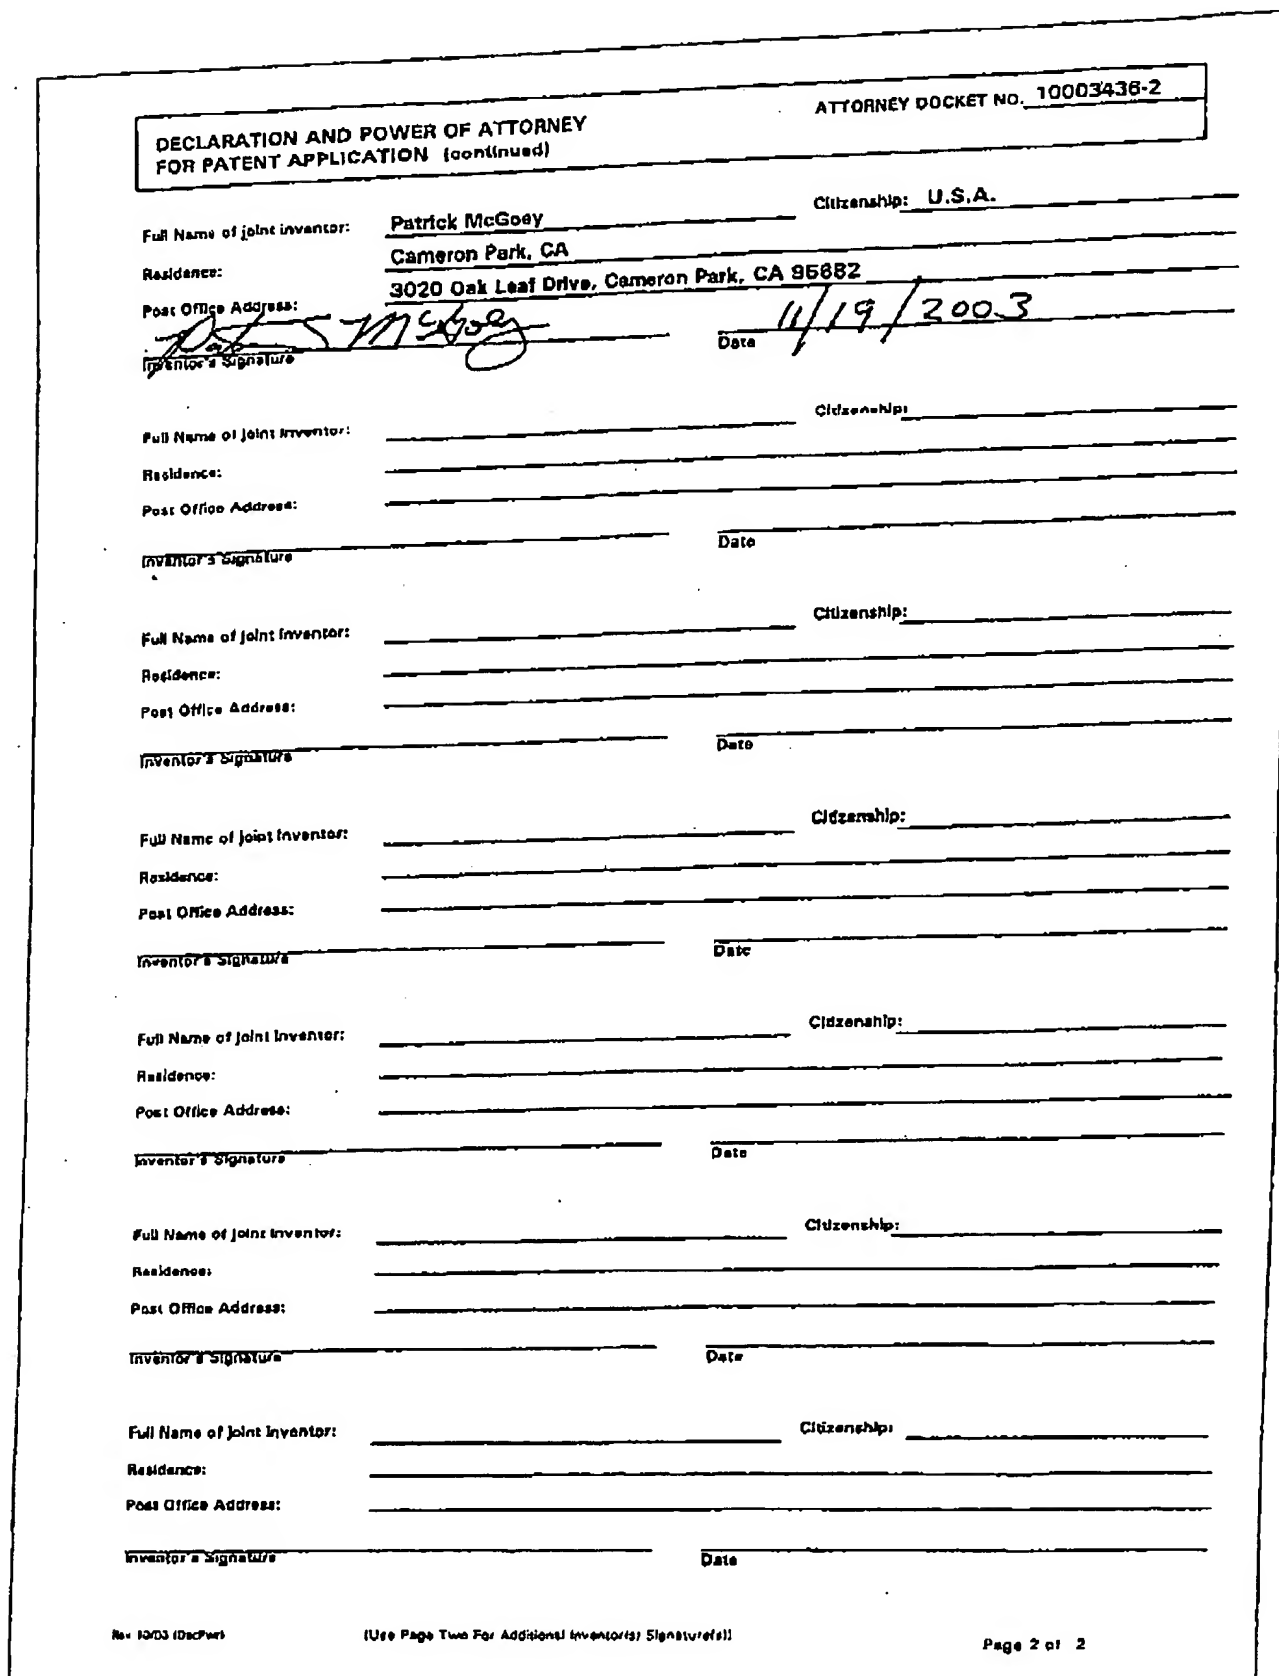 DECLARATION AND POWER OF ATTORNEY
FOR PATENT APPLICATION (continued)
ATTORNEY DOCKET NO. 10003436-2
Full Name of joint inventor: Patrick McGoey Citizenship: U.S.A.
Residence: Cameron Park, CA
Post Office Address: 3020 Oak Leaf Drive, Cameron Park, CA 95682
McGoey 11/19/2003
Inventor's Signature Date
Full Name of joint Inventor: Citizenship:
Residence:
Post Office Address:
Inventor's Signature Date
Full Name of joint Inventor: Citizenship:
Residence:
Post Office Address:
Inventor's Signature Date
Full Name of joint Inventor: Citizenship:
Residence:
Post Office Address:
Inventor's Signature Date
Full Name of joint Inventor: Citizenship:
Residence:
Post Office Address:
Inventor's Signature Date
Full Name of joint Inventor: Citizenship:
Residence:
Post Office Address:
Inventor's Signature Date
Full Name of joint Inventor: Citizenship:
Residence:
Post Office Address:
Inventor's Signature Date
Rev 10/03 (DecPwr) (Use Page Two For Additional Inventor(s) Signature(s)) Page 2 of 2